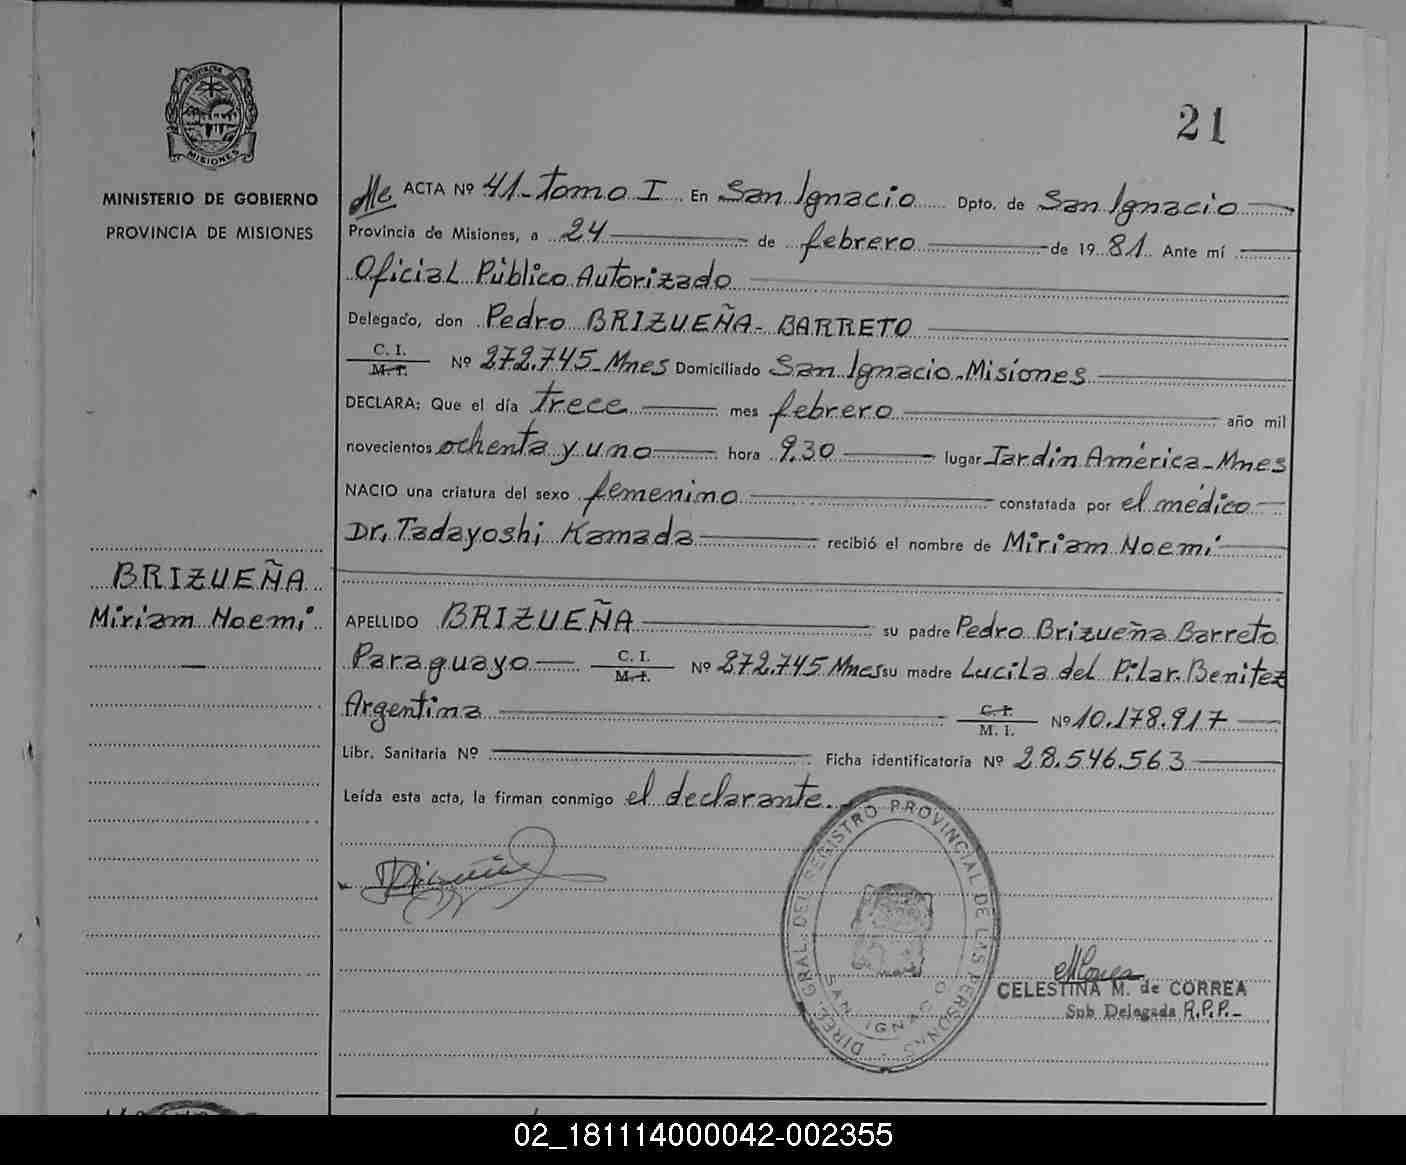 21
PROVINCIA DE
MISIONES
MINISTERIO DE GOBIERNO
PROVINCIA DE MISIONES
ACTA Nº 41-Tomo I En San Ignacio Dpto. de San Ignacio
Provincia de Misiones, a 24 de febrero de 1981 Ante mí
Oficial Público Autorizado
Delegado, don Pedro BRIZUEÑA-BARRETO
C. I.
M. I. Nº 272.745-Mnes Domiciliado San Ignacio-Misiones
DECLARA: Que el día trece mes febrero año mil
novecientos ochenta y uno hora 9.30 lugar Jardin América-Mnes
NACIO una criatura del sexo femenino constatada por el médico
Dr. Tadayoshi Kamada recibió el nombre de Miriam Noemi
BRIZUEÑA
Miriam Noemi
APELLIDO BRIZUEÑA su padre Pedro Brizueña Barreto
Paraguayo C. I.
M. I. Nº 272.745 Mnes su madre Lucila del Pilar Benitez
Argentina C. I.
M. I. Nº 10.178.917
Libr. Sanitaria Nº Ficha identificatoria Nº 28.546.563
Leída esta acta, la firman conmigo el declarante.
DIREC. GRAL. DEL REGISTRO PROVINCIAL DE LAS PERSONAS
SAN IGNACIO
CELESTINA M. de CORREA
Sub Delegada R.P.P.-
02_181114000042-002355